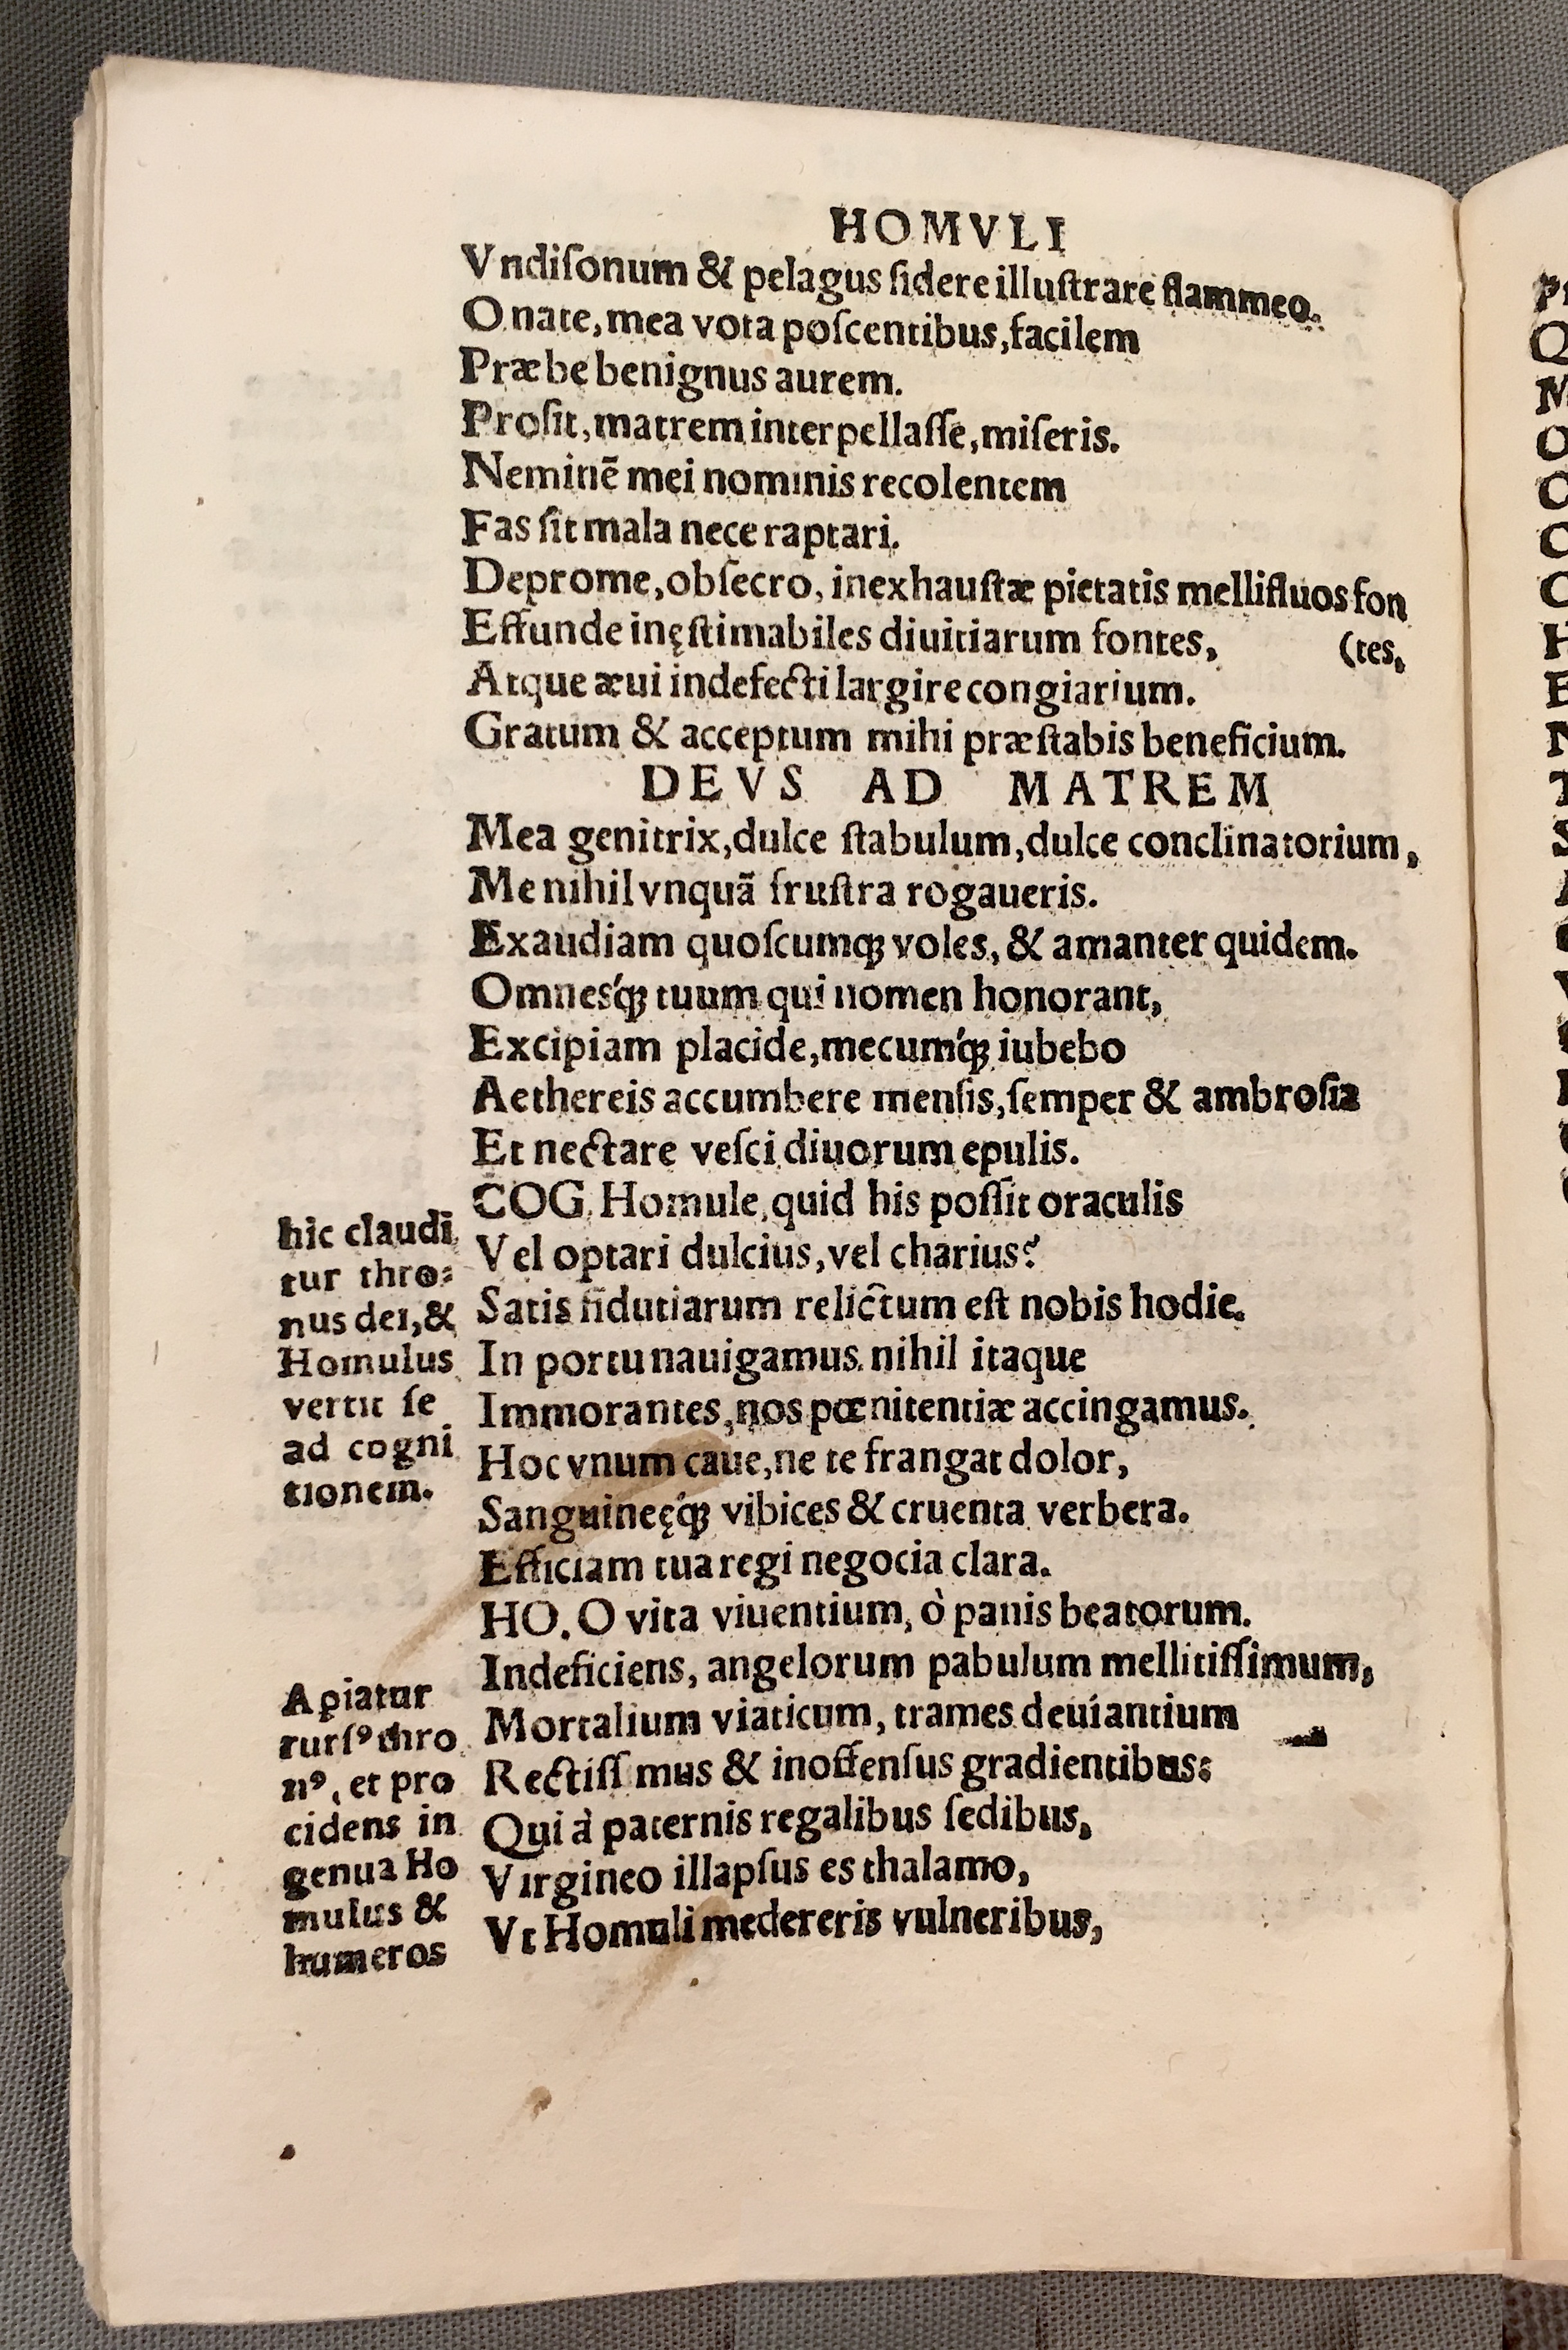 HOMVLI
Vndiſonum & pelagus ſidere illuſtrare flammeo.
O nate, mea vota poſcentibus, facilem
Præbe benignus aurem.
Proſit, matrem interpellaſſe, miſeris.
Neminē mei nominis recolentem
Fas ſit mala nece raptari.
Deprome, obſecro, inexhauſtæ pietatis mellifluos fon
Effunde inęſtimabiles diuitiarum fontes, (tes,
Atque æui indefecti largire congiarium.
Gratum & acceptum mihi præſtabis beneficium.
DEVS AD MATREM
Mea genitrix, dulce ſtabulum, dulce conclinatorium,
Me nihil vnquā fruſtra rogaueris.
Exaudiam quoſcumqꝫ voles, & amanter quidem.
Omnesq́ꝫ tuum qui nomen honorant,
Excipiam placide, mecumq́ꝫ iubebo
Aethereis accumbere menſis, ſemper & ambroſia
Et nectare veſci diuorum epulis.
COG. Homule, quid his poſſit oraculis
Vel optari dulcius, vel charius?
Satis fidutiarum relictum eſt nobis hodie.
In portu nauigamus. nihil itaque
Immorantes, nos pœnitentiæ accingamus.
Hoc vnum caue, ne te frangat dolor,
Sanguineęq́ꝫ vibices & cruenta verbera.
Efficiam tua regi negocia clara.
HO. O vita viuentium, ò panis beatorum.
Indeficiens, angelorum pabulum mellitiſſimum,
Mortalium viaticum, trames deuiantium
Rectiſſ mus & inoffenſus gradientibus:
Qui à paternis regalibus ſedibus,
Virgineo illapſus es thalamo,
Vt Homuli medereris vulneribus,
hic claudi
tur thro⸗
nus dei, &
Homulus
vertit ſe
ad cogni
tionem.
Apiatur
rurſꝰ thro
nꝰ, et pro
cidens in
genua Ho
mulus &
humeros